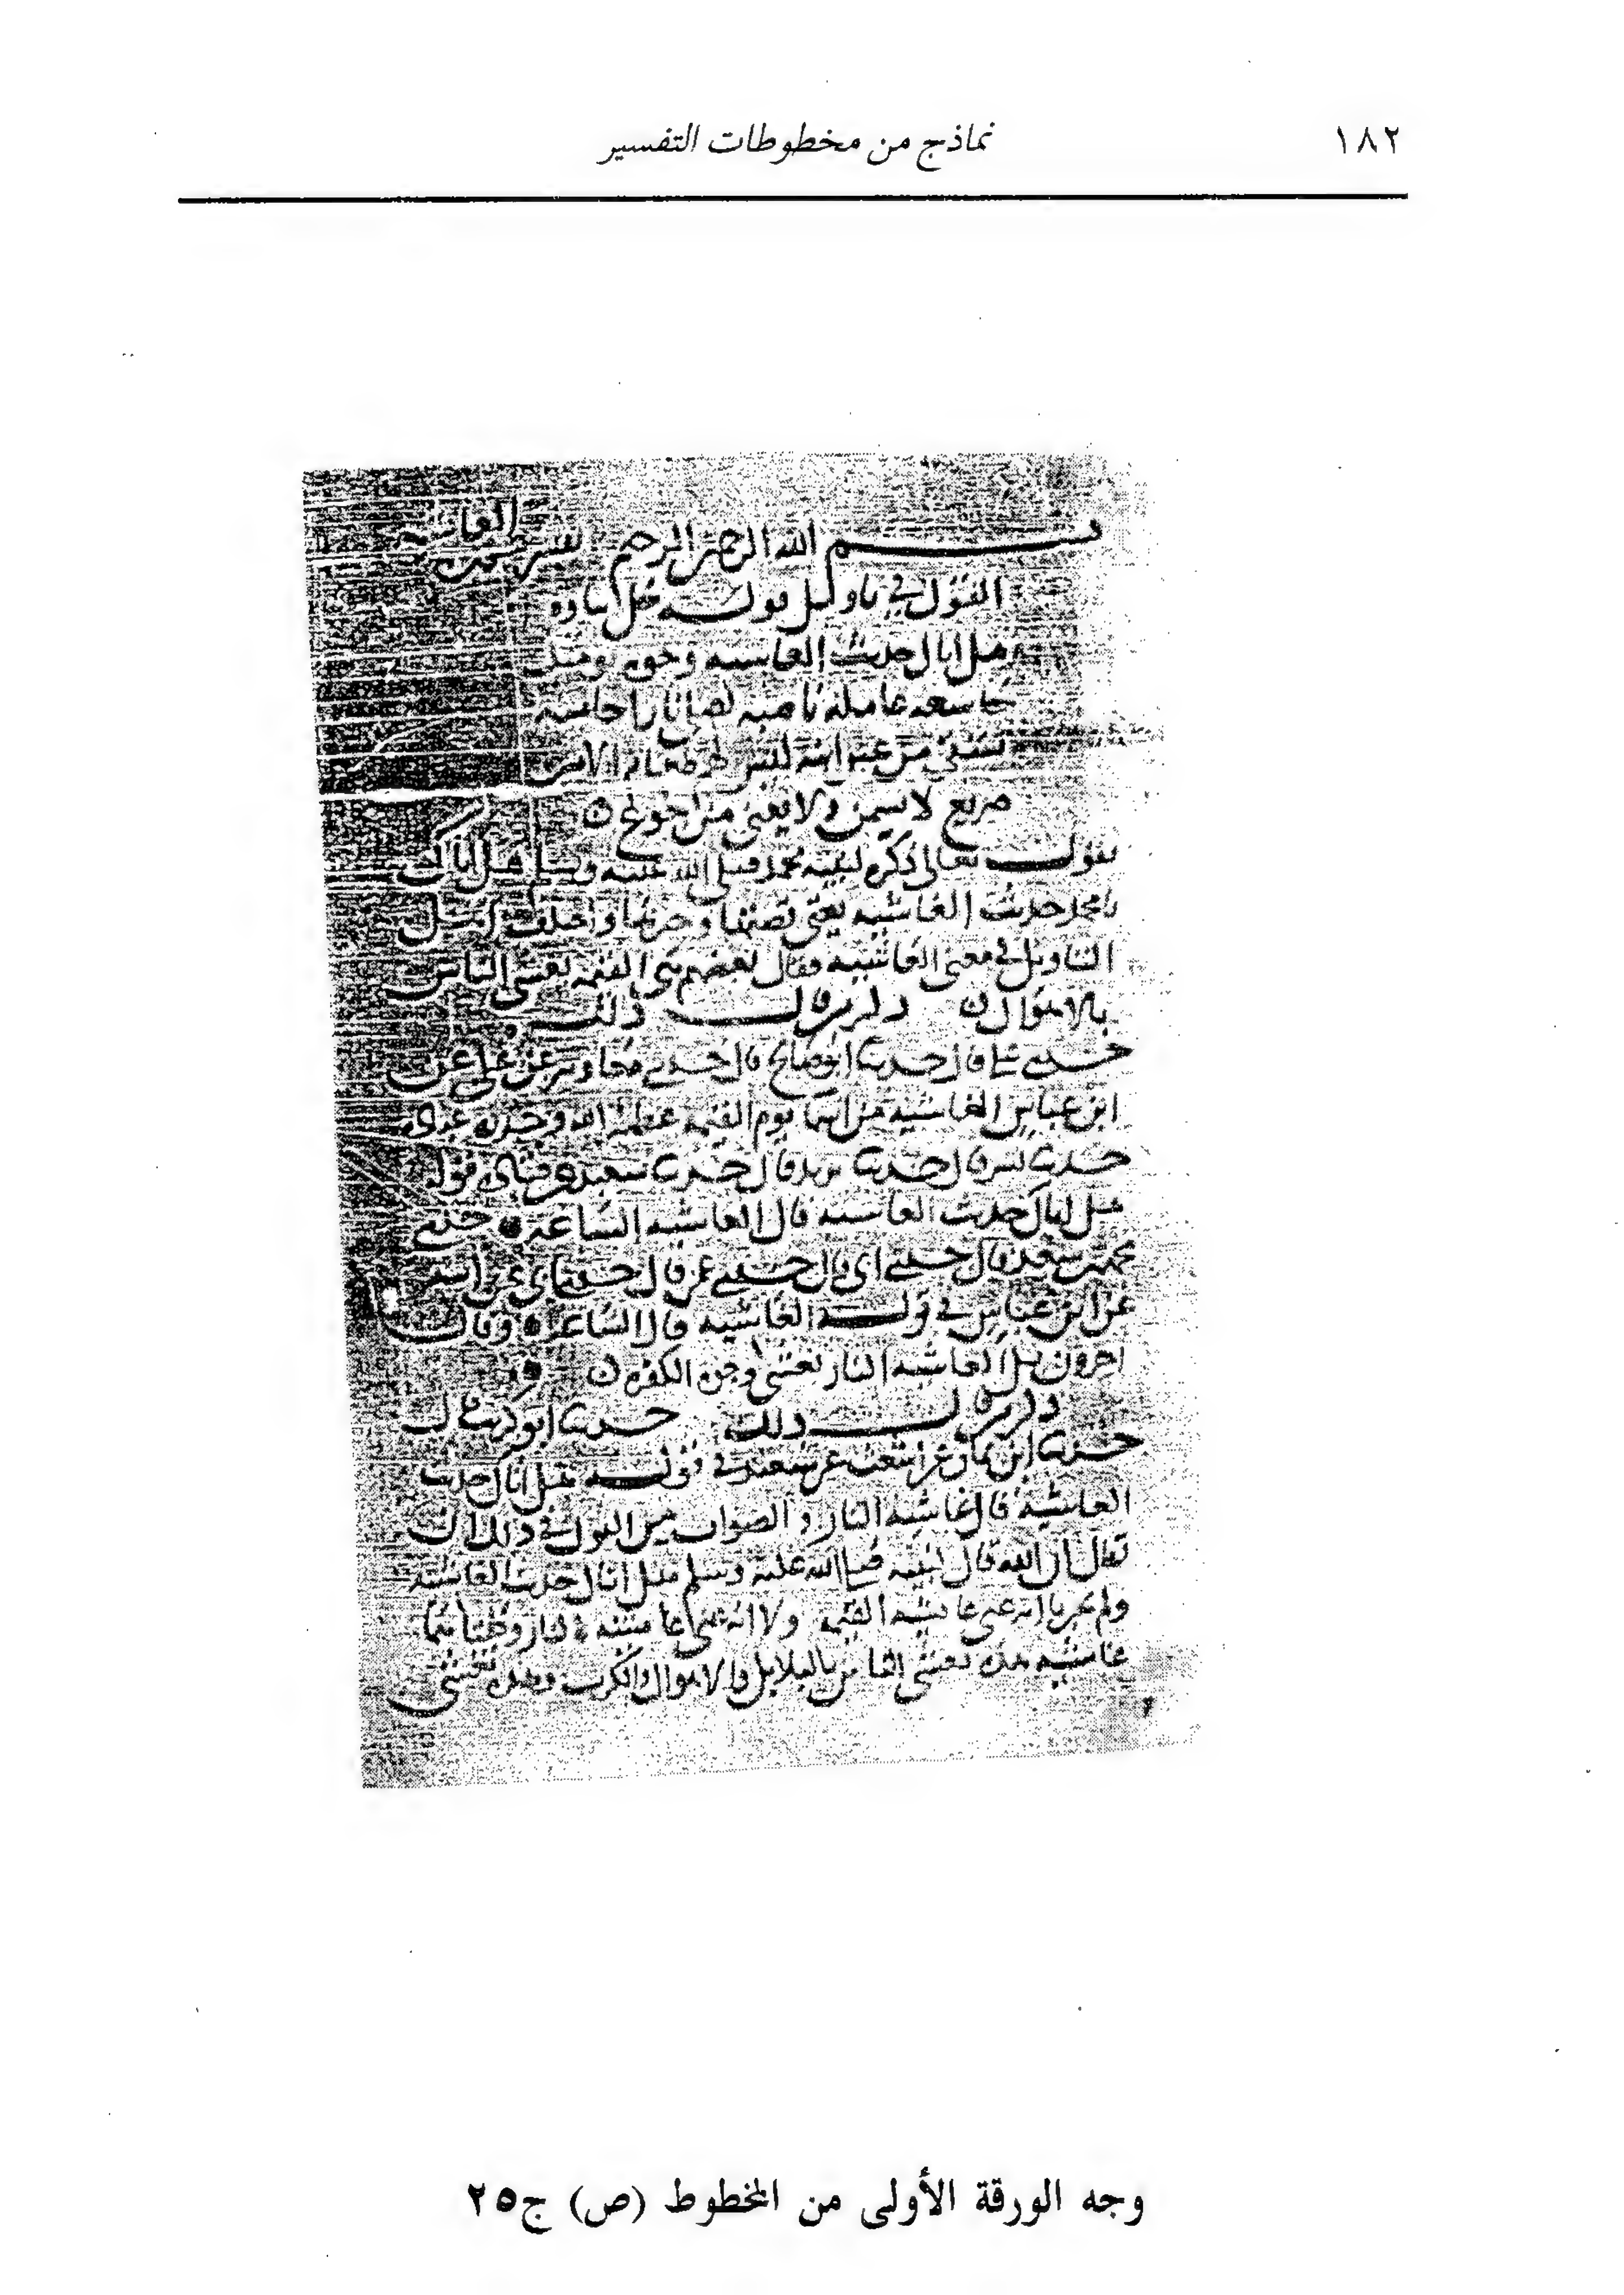 ١٨٢
نماذج من مخطوطات التفسير
بسم الله الرحمن الرحيم تفسير الغاشية
القول في تاويل قوله جل ثناوه
هل اتاك حديث الغاشيه وجوه يومئذ
خاشعه عامله ناصبه تصلى نارا حاميه
تسقى من عين انيه ليس لهم طعام الا من
ضريع لا يسمن ولا يغني من جوع
يقول تعالى ذكره لنبيه محمد صلى الله عليه وسلم هل اتاك
يا محمد حديث الغاشيه يعني قصتها وخبرها واختلف اهل
التاويل في معنى الغاشيه فقال بعضهم هي القيمه تغشى الناس
بالاهوال ذكر من قال ذلك
حدثني علي قال حدثنا ابو صالح قال حدثني معاويه عن علي عن
ابن عباس الغاشيه من اسما يوم القيمه عظمه الله وحذره عباده
حدثنا بشر قال حدثنا يزيد قال حدثنا سعيد عن قتاده قوله
هل اتاك حديث الغاشيه قال الغاشيه الساعه حدثني
محمد بن سعد قال حدثني ابي قال حدثني عمي قال حدثني ابي عن ابيه
عن ابن عباس في قوله الغاشيه قال الساعه وقال
اخرون بل الغاشيه النار تغشى وجوه الكفره
ذكر من قال ذلك حدثنا ابو كريب قال
حدثنا ابن يمان عن اشعث عن سعيد في قوله هل اتاك حديث
الغاشيه قال غاشيه النار والصواب من القول في ذلك ان
يقال ان الله قال لنبيه صلى الله عليه وسلم هل اتاك حديث الغاشيه
ولم يخبرنا انه عنى غاشيه القيمه ولا انه عنى غاشيه النار وكلتاهما
غاشيه هذه تغشى الناس بالبلابل والاهوال والكرب وهذه تغشى
وجه الورقة الأولى من المخطوط (ص) ج٢٥